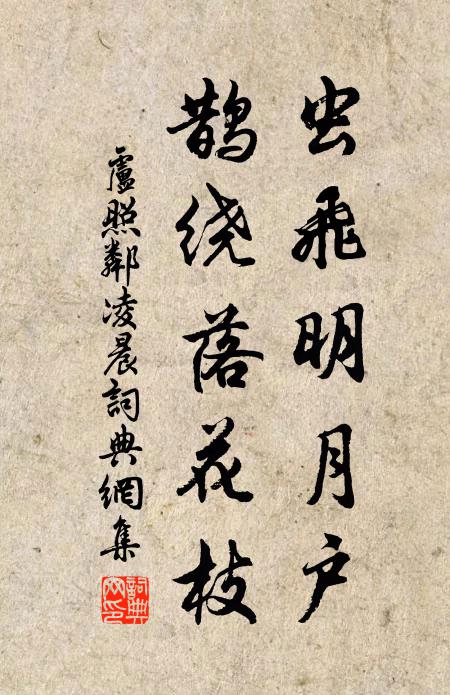 虫飛明月户
鵲绕落花枝
盧照鄰凌晨詞典網集
詞典